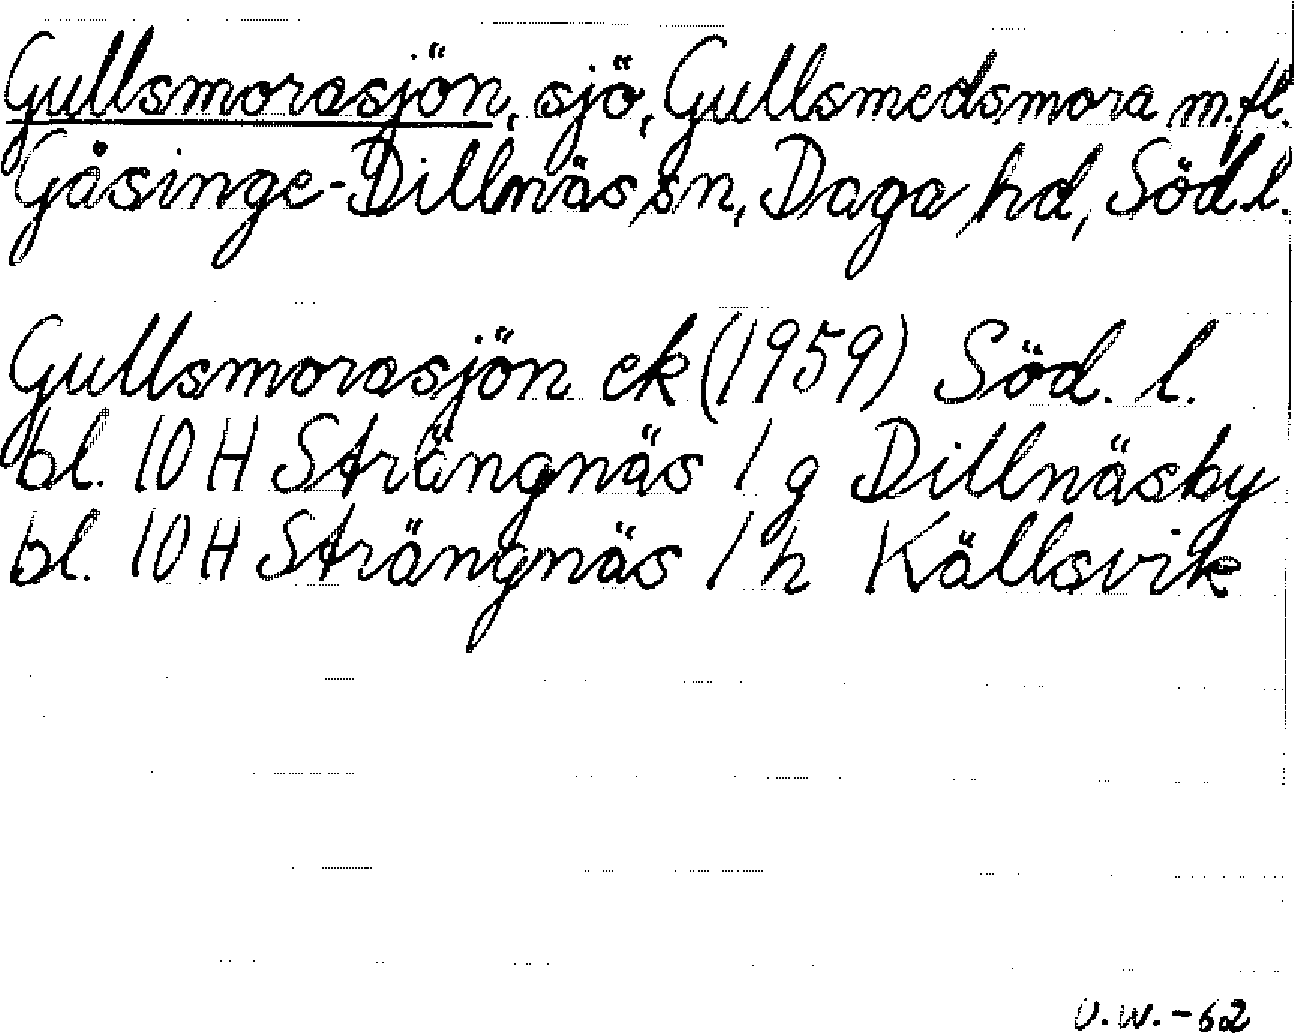 Gullsmorasjön, sjö, Gullsmedsmora m.fl.
Gåsinge-Dillnäs sn, Daga hd, Södl.
Gullsmorasjön ek (1959) Söd. l.
bl. 10 H Strängnäs 1 g Dillnäsby
bl. 10 H Strängnäs 1 h Källsvik
U.W.-62